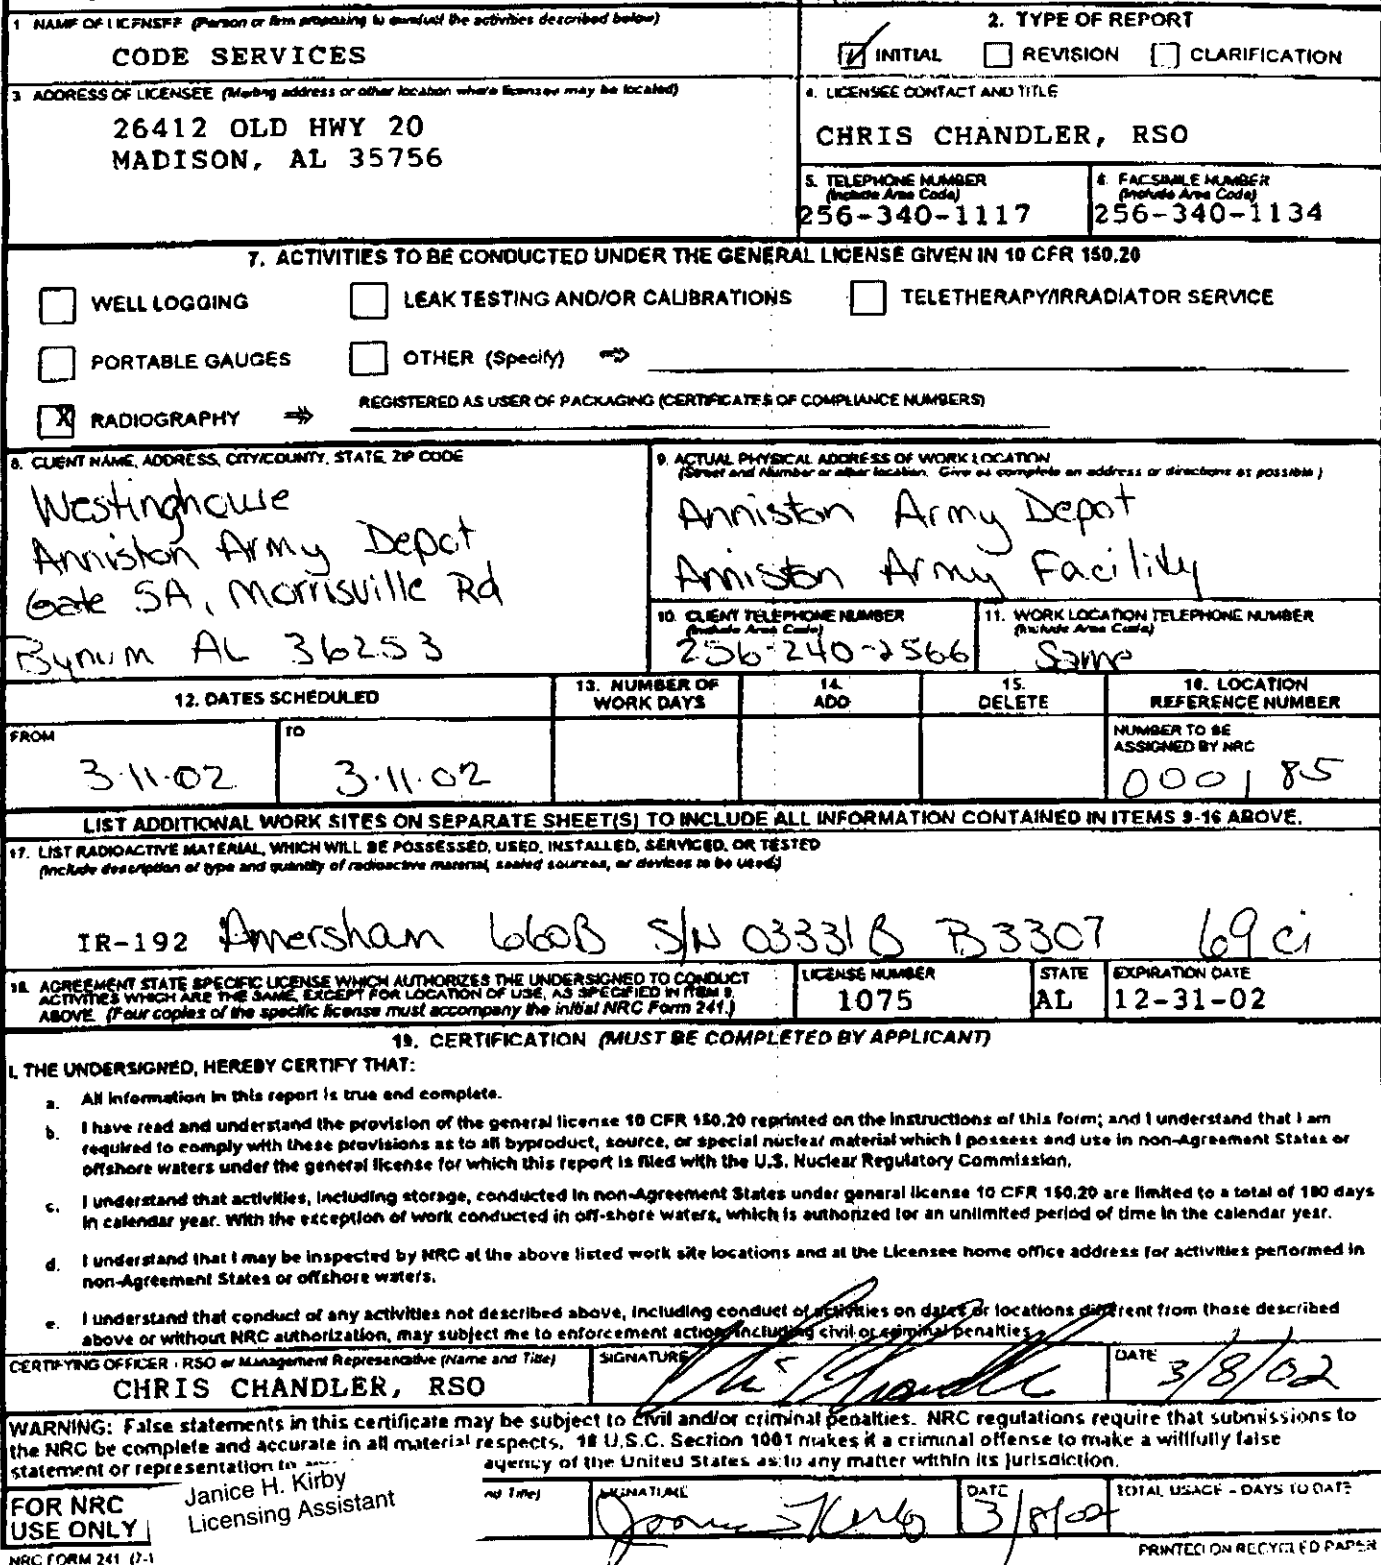 1 NAME OF LICENSEE (Person or firm proposing to conduct the activities described below)
CODE SERVICES
2. TYPE OF REPORT
INITIAL REVISION CLARIFICATION
3 ADDRESS OF LICENSEE (Mailing address or other location where licensee may be located)
26412 OLD HWY 20
MADISON, AL 35756
4. LICENSEE CONTACT AND TITLE
CHRIS CHANDLER, RSO
5. TELEPHONE NUMBER
(Include Area Code)
256-340-1117
6. FACSIMILE NUMBER
(Include Area Code)
256-340-1134
7. ACTIVITIES TO BE CONDUCTED UNDER THE GENERAL LICENSE GIVEN IN 10 CFR 150.20
WELL LOGGING LEAK TESTING AND/OR CALIBRATIONS TELETHERAPY/IRRADIATOR SERVICE
PORTABLE GAUGES OTHER (Specify) ⇒
X RADIOGRAPHY ⇒ REGISTERED AS USER OF PACKAGING (CERTIFICATES OF COMPLIANCE NUMBERS)
8. CLIENT NAME, ADDRESS, CITY/COUNTY, STATE, ZIP CODE
Westinghouse
Anniston Army Depot
Gate 5A, Morrisville Rd
Bynum AL 36253
9. ACTUAL PHYSICAL ADDRESS OF WORK LOCATION
(Street and Number or other location. Give as complete an address or directions as possible)
Anniston Army Depot
Anniston Army Facility
10. CLIENT TELEPHONE NUMBER
(Include Area Code)
256-240-2566
11. WORK LOCATION TELEPHONE NUMBER
(Include Area Code)
Same
12. DATES SCHEDULED
13. NUMBER OF WORK DAYS
14. ADD
15. DELETE
16. LOCATION REFERENCE NUMBER
FROM
3-11-02
TO
3-11-02
NUMBER TO BE
ASSIGNED BY NRC
000185
LIST ADDITIONAL WORK SITES ON SEPARATE SHEET(S) TO INCLUDE ALL INFORMATION CONTAINED IN ITEMS 9-16 ABOVE.
17. LIST RADIOACTIVE MATERIAL, WHICH WILL BE POSSESSED, USED, INSTALLED, SERVICED, OR TESTED
(Include description of type and quantity of radioactive material, sealed sources, or devices to be used)
IR-192 Amersham 660B S/N 03331B B3307 69 ci
18. AGREEMENT STATE SPECIFIC LICENSE WHICH AUTHORIZES THE UNDERSIGNED TO CONDUCT
ACTIVITIES WHICH ARE THE SAME, EXCEPT FOR LOCATION OF USE, AS SPECIFIED IN ITEM 9,
ABOVE. (Four copies of the specific license must accompany the initial NRC Form 241.)
LICENSE NUMBER
1075
STATE
AL
EXPIRATION DATE
12-31-02
19. CERTIFICATION (MUST BE COMPLETED BY APPLICANT)
I, THE UNDERSIGNED, HEREBY CERTIFY THAT:
a. All information in this report is true and complete.
b. I have read and understand the provision of the general license 10 CFR 150.20 reprinted on the instructions of this form; and I understand that I am
required to comply with these provisions as to all byproduct, source, or special nuclear material which I possess and use in non-Agreement States or
offshore waters under the general license for which this report is filed with the U.S. Nuclear Regulatory Commission.
c. I understand that activities, including storage, conducted in non-Agreement States under general license 10 CFR 150.20 are limited to a total of 180 days
in calendar year. With the exception of work conducted in off-shore waters, which is authorized for an unlimited period of time in the calendar year.
d. I understand that I may be inspected by NRC at the above listed work site locations and at the Licensee home office address for activities performed in
non-Agreement States or offshore waters.
e. I understand that conduct of any activities not described above, including conduct of activities on dates or locations different from those described
above or without NRC authorization, may subject me to enforcement action, including civil or criminal penalties.
CERTIFYING OFFICER - RSO or Management Representative (Name and Title)
CHRIS CHANDLER, RSO
SIGNATURE
DATE
3/8/02
WARNING: False statements in this certificate may be subject to civil and/or criminal penalties. NRC regulations require that submissions to
the NRC be complete and accurate in all material respects. 18 U.S.C. Section 1001 makes it a criminal offense to make a willfully false
statement or representation to agency of the United States as to any matter within its jurisdiction.
FOR NRC
USE ONLY
Janice H. Kirby
Licensing Assistant
nd Title)
SIGNATURE
DATE
3/8/02
TOTAL USAGE - DAYS TO DATE
NRC FORM 241 (7-1
PRINTED ON RECYCLED PAPER